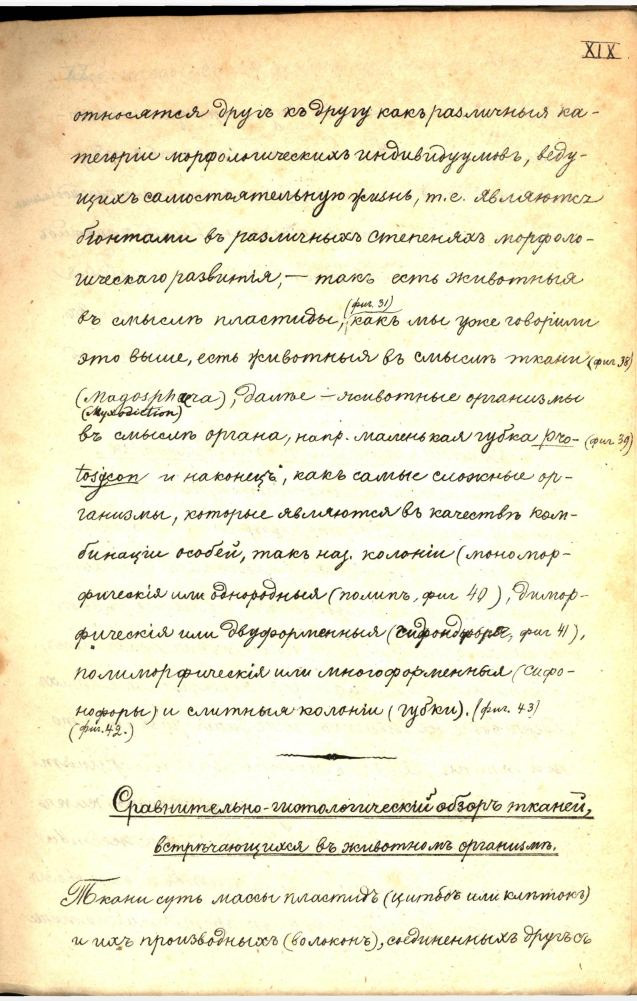 XIX
относятся другъ къ другу какъ различныя ка-
тегоріи морфологическихъ индивидуумовъ, веду-
щихъ самостоятельную жизнь, т.е. являются
біонтами въ различныхъ степеняхъ морфоло-
гическаго развитія, — такъ есть животныя
(фиг. 31)
въ смыслѣ пластиды, какъ мы уже говорили
это выше, есть животныя въ смыслѣ ткани (фиг. 38)
(Magosphæra), далѣе — животные организмы
(Myxodiction)
въ смыслѣ органа, напр. маленькая губка Pro- (фиг. 39)
tosycon и наконецъ, какъ самые сложные ор-
ганизмы, которые являются въ качествѣ ком-
бинаціи особей, такъ наз. колоніи (мономор-
фическія или однородныя (полипъ, фиг 40), димор-
фическія или двуформенныя (фиг 41),
полиморфическія или многоформенныя (сифо-
нофоры) и слитныя колоніи (губки). (фиг. 43)
(фиг. 42.)
Сравнительно-гистологическій обзоръ тканей,
встрѣчающихся въ животномъ организмѣ.
Ткани суть массы пластидъ (цитодъ или клѣтокъ)
и ихъ производныхъ (волоконъ), соединенныхъ другъ съ